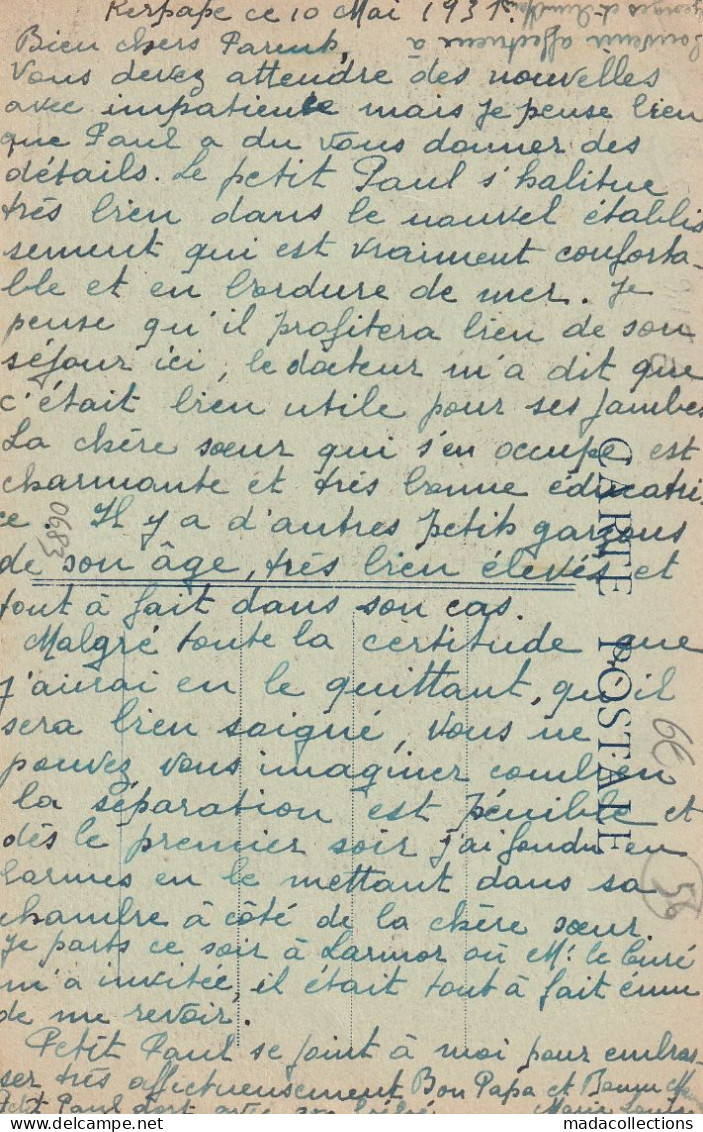 Kerpape ce 10 Mai 1931.
Souvenir affectueux à
Georges et
Bien chers Parents,
Vous devez attendre des nouvelles
avec impatience mais je pense bien
que Paul a du vous donner des
détails. Le petit Paul s'habitue
très bien dans le nouvel établis
sement qui est vraiment conforta-
ble et en bordure de mer. Je
pense qu'il profitera bien de son
séjour ici, le docteur m'a dit que
c'était bien utile pour ses jambes
La chère sœur qui s'en occupe est
charmante et très bonne éducatri-
ce. Il y a d'autres petits garçons
de son âge, très bien élevés et
tout à fait dans son cas.
Malgré toute la certitude que
j'aurai en le quittant, qu'il
sera bien soigné, vous ne
pouvez vous imaginer combien
la séparation est pénible et
dès le premier soir j'ai fondu en
larmes en le mettant dans sa
chambre à côté de la chère sœur.
Je parts ce soir à Larmor où Mr le Curé
m'a invitée, il était tout à fait ému
de me revoir.
Petit Paul se joint à moi pour embras-
ser très affectueusement Bon Papa et Bonne Maman
Petit Paul dort Marie Louise
CARTE POSTALE
0683
6€
56
www.delcampe.net
madacollections